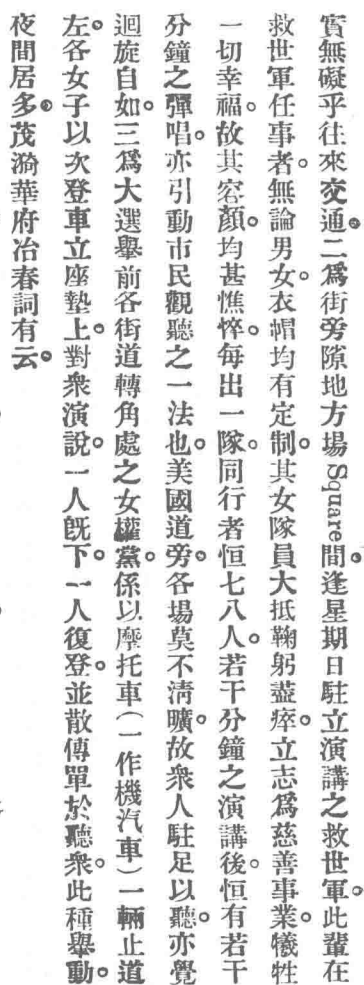 實無礙乎往來交通。二爲街旁隙地方場Square間。逢星期日駐立演講之救世軍。此輩在
救世軍任事者。無論男女。衣帽均有定制。其女隊員大抵鞠躬盡瘁。立志爲慈善事業。犧牲
一切幸福。故其容顏。均甚憔悴。每出一隊。同行者恒七八人。若干分鐘之演講後。恒有若干
分鐘之彈唱。亦引動市民觀聽之一法也。美國道旁。各場莫不淸曠。故衆人駐足以聽。亦覺
迴旋自如。三爲大選舉前各街道轉角處之女權黨。係以摩托車（一作機汽車）一輛止道
左。各女子以次登車立座墊上。對衆演說。一人旣下。一人復登。並散傳單於聽衆。此種舉動。
夜間居多。茂漪華府冶春詞有云。